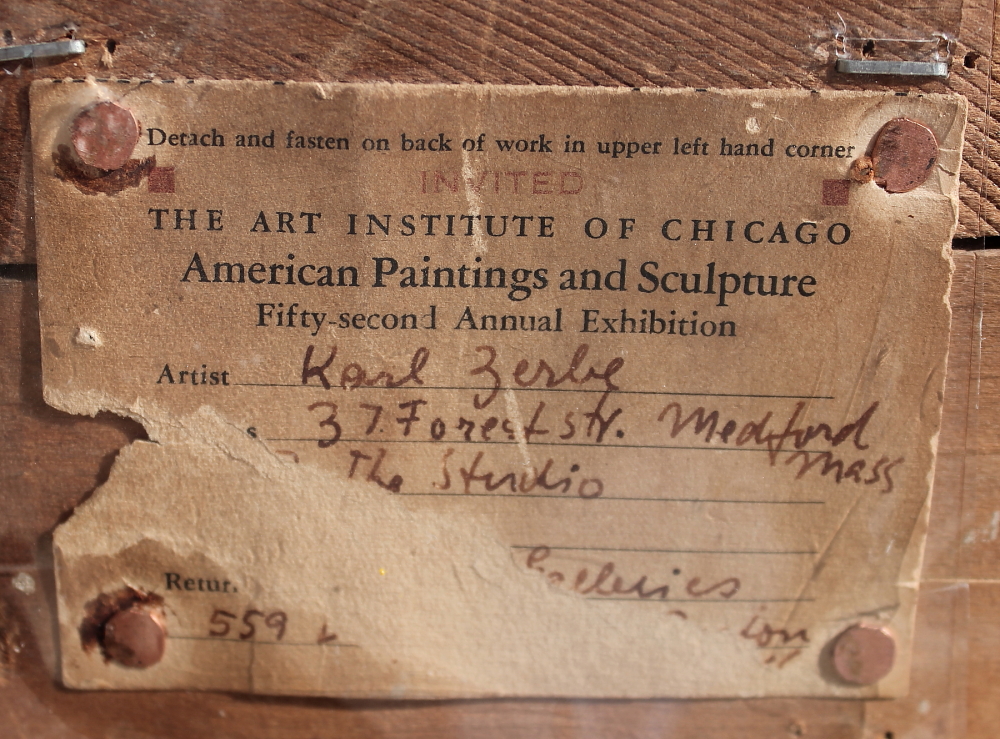 Detach and fasten on back of work in upper left hand corner
INVITED
THE ART INSTITUTE OF CHICAGO
American Paintings and Sculpture
Fifty-second Annual Exhibition
Artist Karl Zerbe
s 37 Forest str. Medford
Mass
The Studio
Galleries
Retur.
559